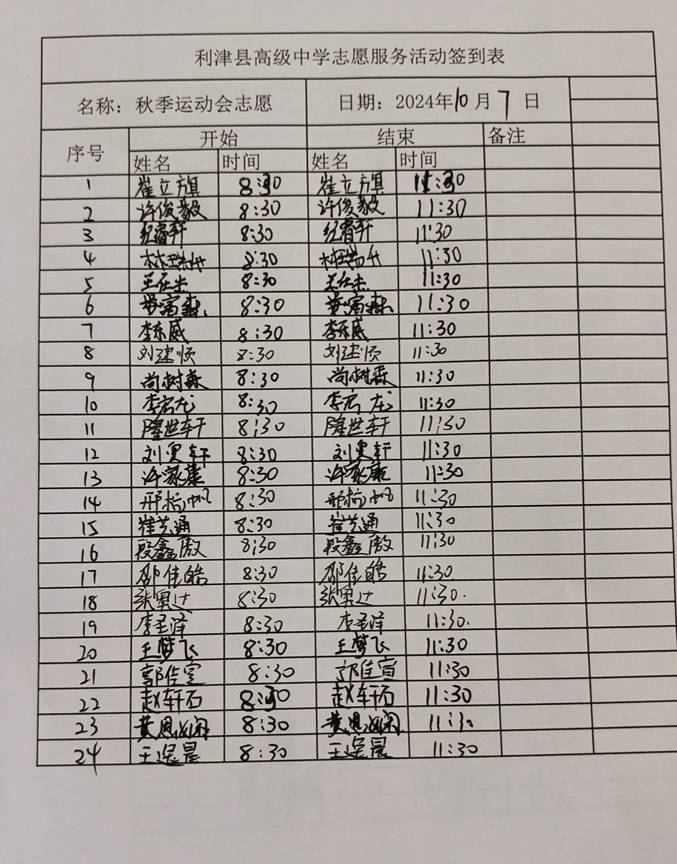 利津县高级中学志愿服务活动签到表
名称：秋季运动会志愿 日期：2024年10月7日
序号 开始 结束 备注
姓名 时间 姓名 时间
1 崔立旗 8:30 崔立旗 11:30
2 许俊毅 8:30 许俊毅 11:30
3 纪睿轩 8:30 纪睿轩 11:30
4 8:30 11:30
5 8:30 11:30
6 黄富森 8:30 黄富森 11:30
7 李东威 8:30 李东威 11:30
8 刘建顺 8:30 刘建顺 11:30
9 尚树森 8:30 尚树森 11:30
10 李宏龙 8:30 李宏龙 11:30
11 隆世轩 8:30 隆世轩 11:30
12 刘昊轩 8:30 刘昊轩 11:30
13 许家康 8:30 许家康 11:30
14 8:30 11:30
15 崔兰通 8:30 崔兰通 11:30
16 段鑫傲 8:30 段鑫傲 11:30
17 邵佳皓 8:30 邵佳皓 11:30
18 8:30 11:30
19 李圣泽 8:30 李圣泽 11:30
20 王梦飞 8:30 王梦飞 11:30
21 郭佳宣 8:30 郭佳宣 11:30
22 赵轩石 8:30 赵轩石 11:30
23 8:30 11:30
24 8:30 11:30